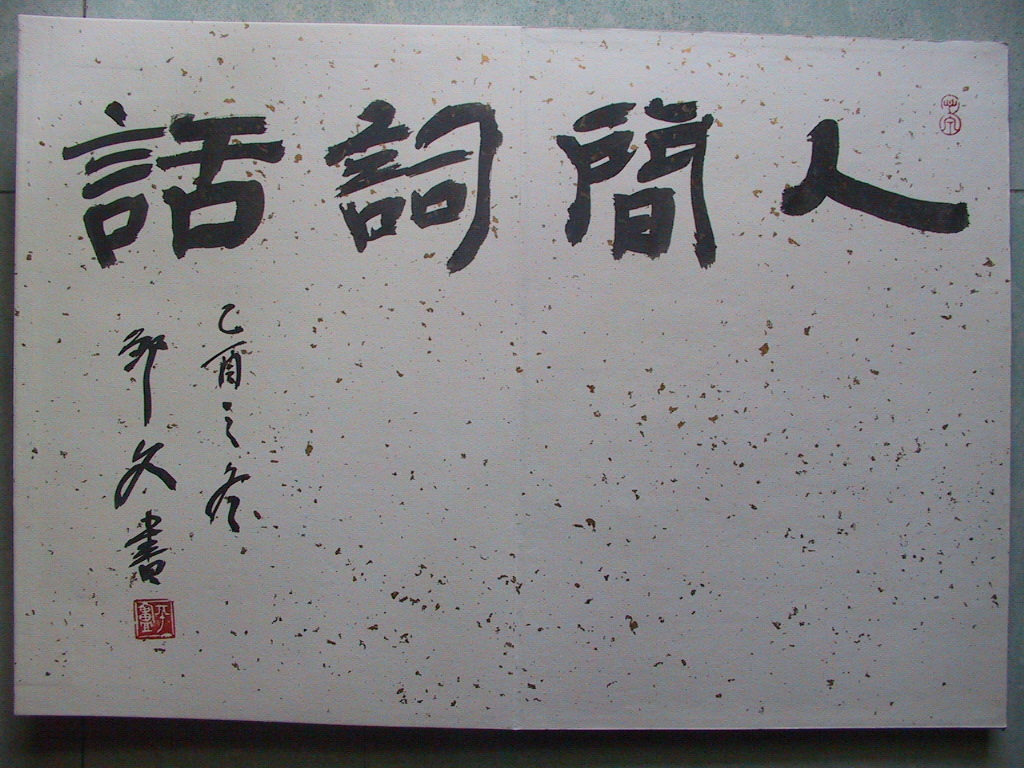 人間詞話
乙酉之冬
書